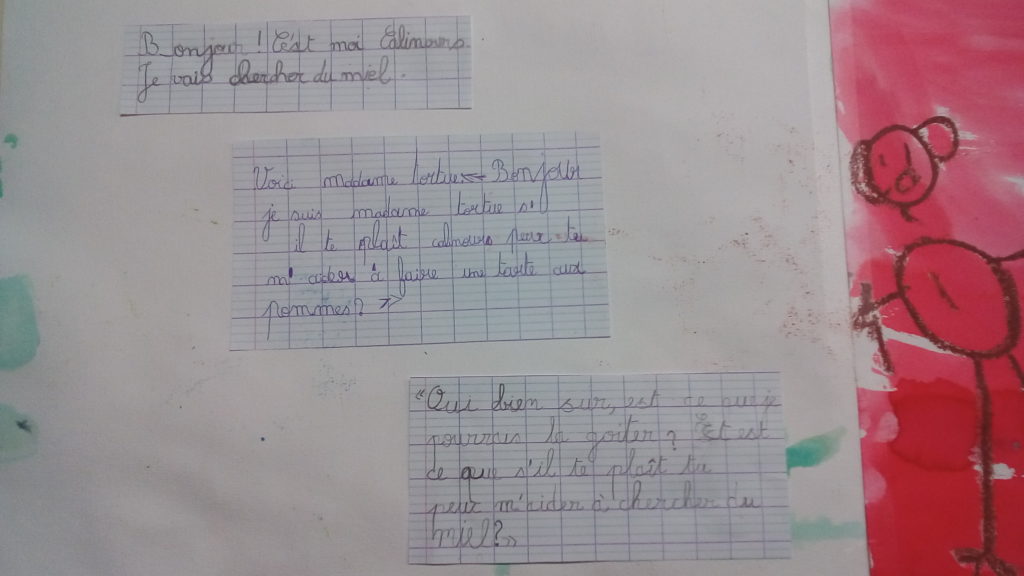 Bonjour ! C'est moi Calinours.
Je vais chercher du miel.
Voici madame tortue << Bonjour
je suis madame tortue s'
il te plaît calinours peux tu
m'aider à faire une tarte aux
pommes? >>
"Oui bien sur, est ce que je
pourrais la goûter? Et est
ce que s'il te plaît tu
peux m'aider à chercher du
miel?»